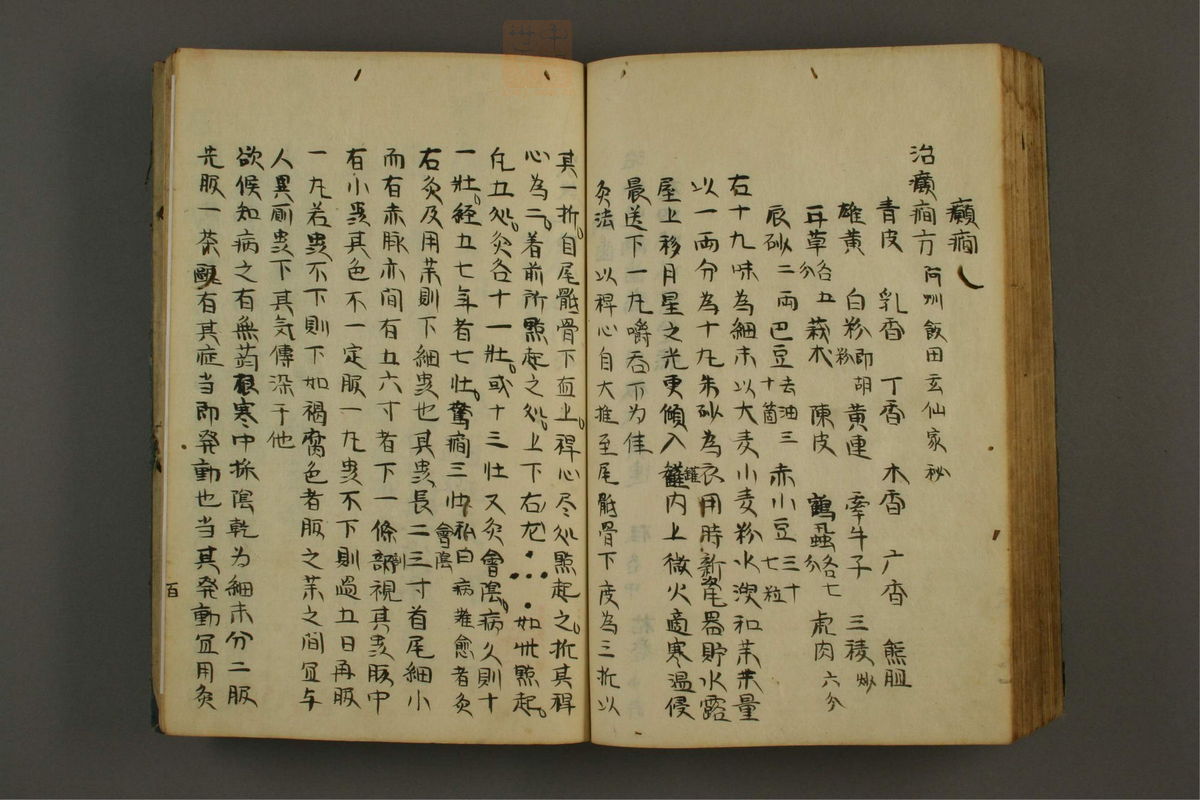 癲癇
治癲癇方 阿州飯田玄仙家秘
青皮 乳香 丁香 木香 广香 熊胆
雄黄 白粉 即胡粉 黄連 牽牛子 三稜炒
甘草各五分 莪朮 陳皮 鶴虱各七分 虎肉六分
辰砂二両 巴豆去油三十箇 赤小豆三十七粒
右十九味為細末以大麦小麦粉水溲和茉茉量
以一両分為十九朱砂為衣用時新瓷器貯水露
屋上移月星之光更傾入鑵内上微火適寒温侵
晨送下一丸嚼吞下为佳
灸法 以稈心自大推至尾骶骨下度為三折以
其一折自尾骶骨下血上稈心尽处點起之折其稈
心為二着前所點起之处上下右左 如此點起
凡五处灸各十一壯或十三壮又灸會陰病久則十
一壯経五七年者七壮驚癇三壮私曰會陰病難愈者灸
右灸及用茉則下細虫也其虫長二三寸首尾細小
而有赤脉亦间有五六寸者下一條割視其虫腹中
有小虫其色不一定服一丸虫不下則過五日再服
一丸若虫不下則下如褐腐色者服之茉之间宜与
人異厠虫下其気傳染于他
欲候知病之有無蒟蒻根寒中拆陰乾为細末分二服
先服一茶甌有其症当即発動也当其発動宜用灸
百